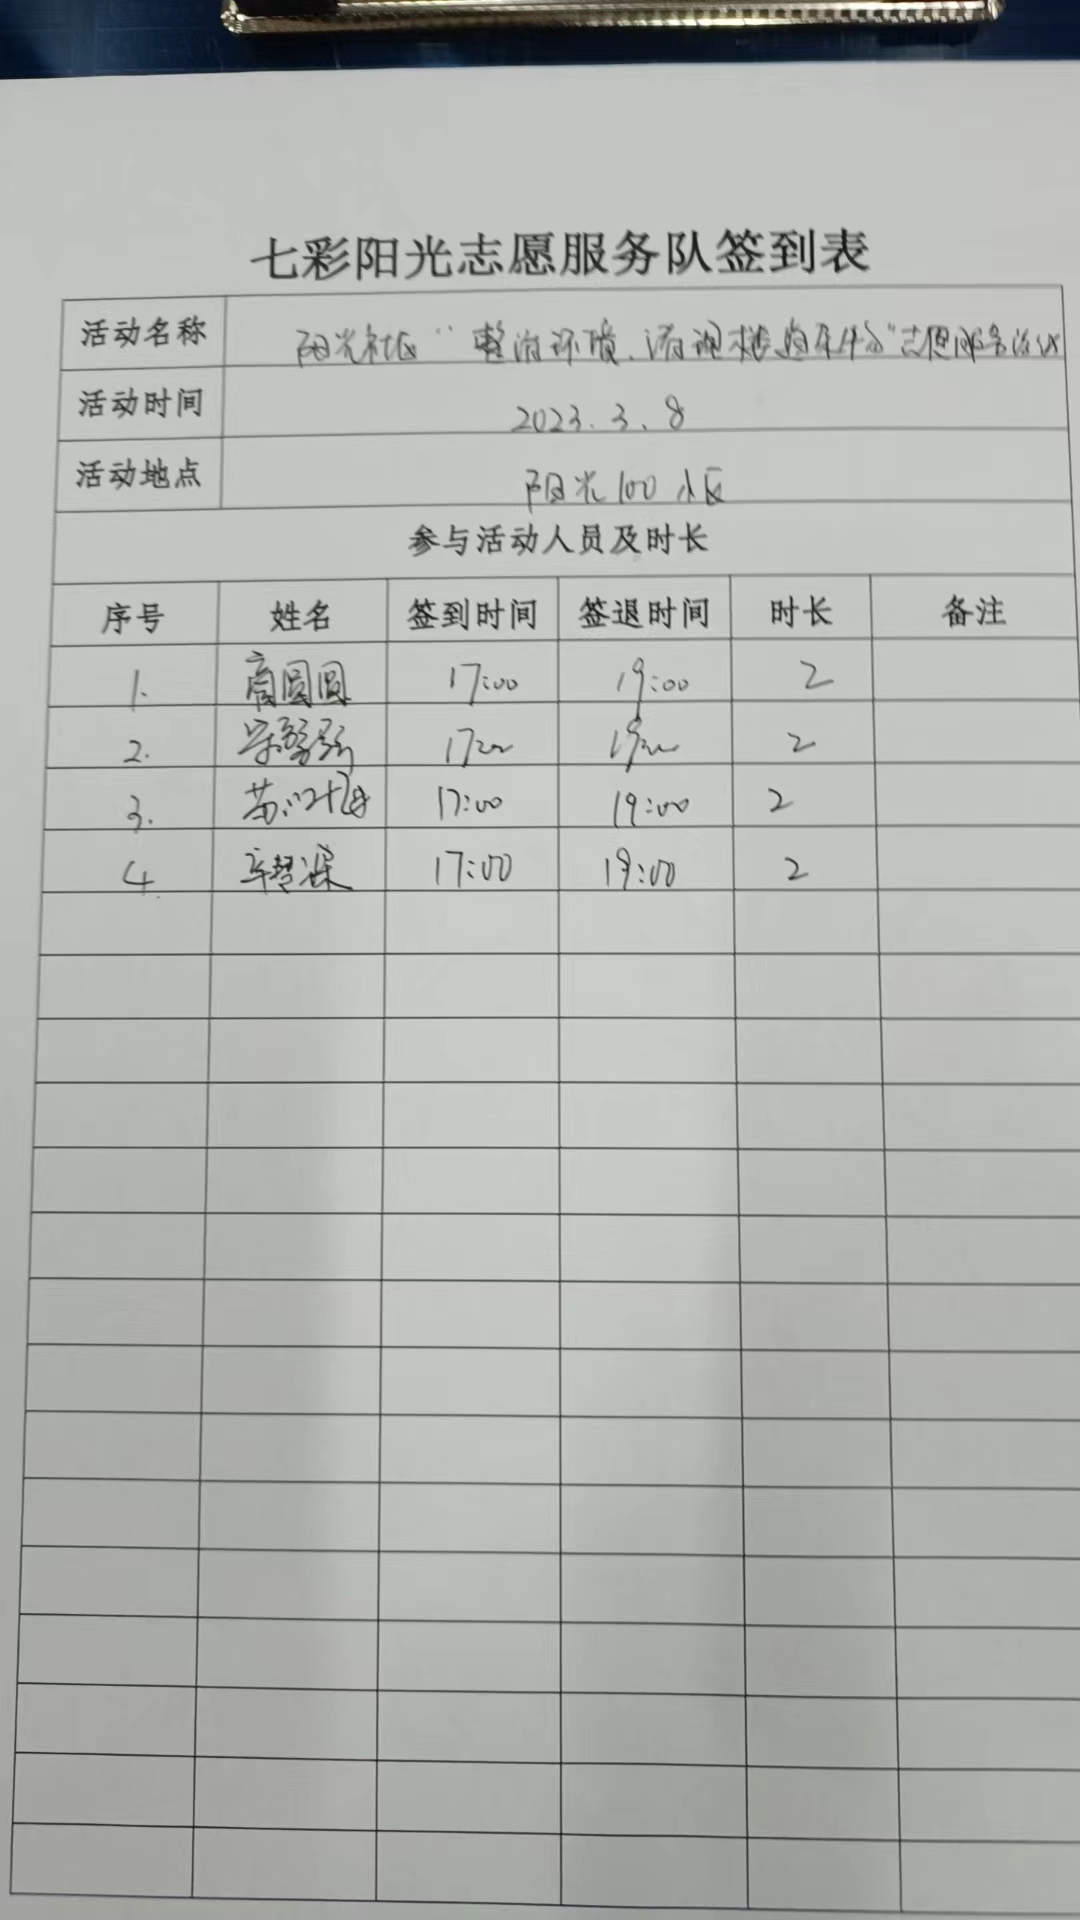 七彩阳光志愿服务队签到表
活动名称 阳光社区"整治环境、清理楼道"志愿服务活动
活动时间 2023.3.8
活动地点 阳光100小区
参与活动人员及时长
序号 姓名 签到时间 签退时间 时长 备注
1. 商圆圆 17:00 19:00 2
2. 17:00 19:00 2
3. 17:00 19:00 2
4 17:00 19:00 2